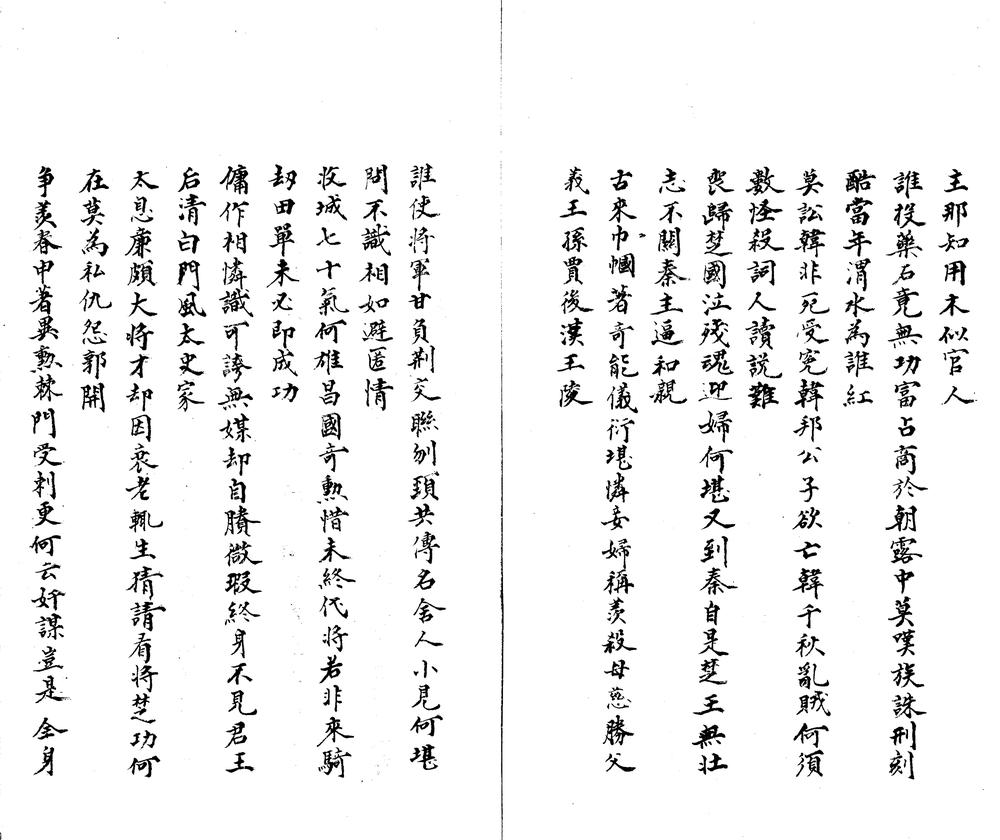 主那知用木似官人
誰投藥石竟無功富占商於朝露中莫嘆族誅刑刻
酷當年渭水為誰紅
莫訟韓非死受寃韓邦公子欲亡韓千秋亂賊何須
數怪殺詞人讀說難
喪歸楚國泣殘魂迎婦何堪又到秦自是楚王無壯
志不關秦主逼和親
古來巾幗著奇能儀衍堪憐妾婦稱羨殺母慈勝父
義王孫賈後漢王陵
誰使將軍甘負荆交聯刎頚共傳名舍人小見何堪
問不識相如避匿情
收城七十氣何雄昌國奇勲惜未終代將若非來騎
刼田單未必即成功
傭作相憐識可誇無媒却自賸微瑕終身不見君王
后清白門風太史家
太息廉頗大将才却因衰老輒生猜請看將楚功何
在莫為私仇怨郭開
爭羨春申著異勲棘門受刺更何云奸謀豈是全身